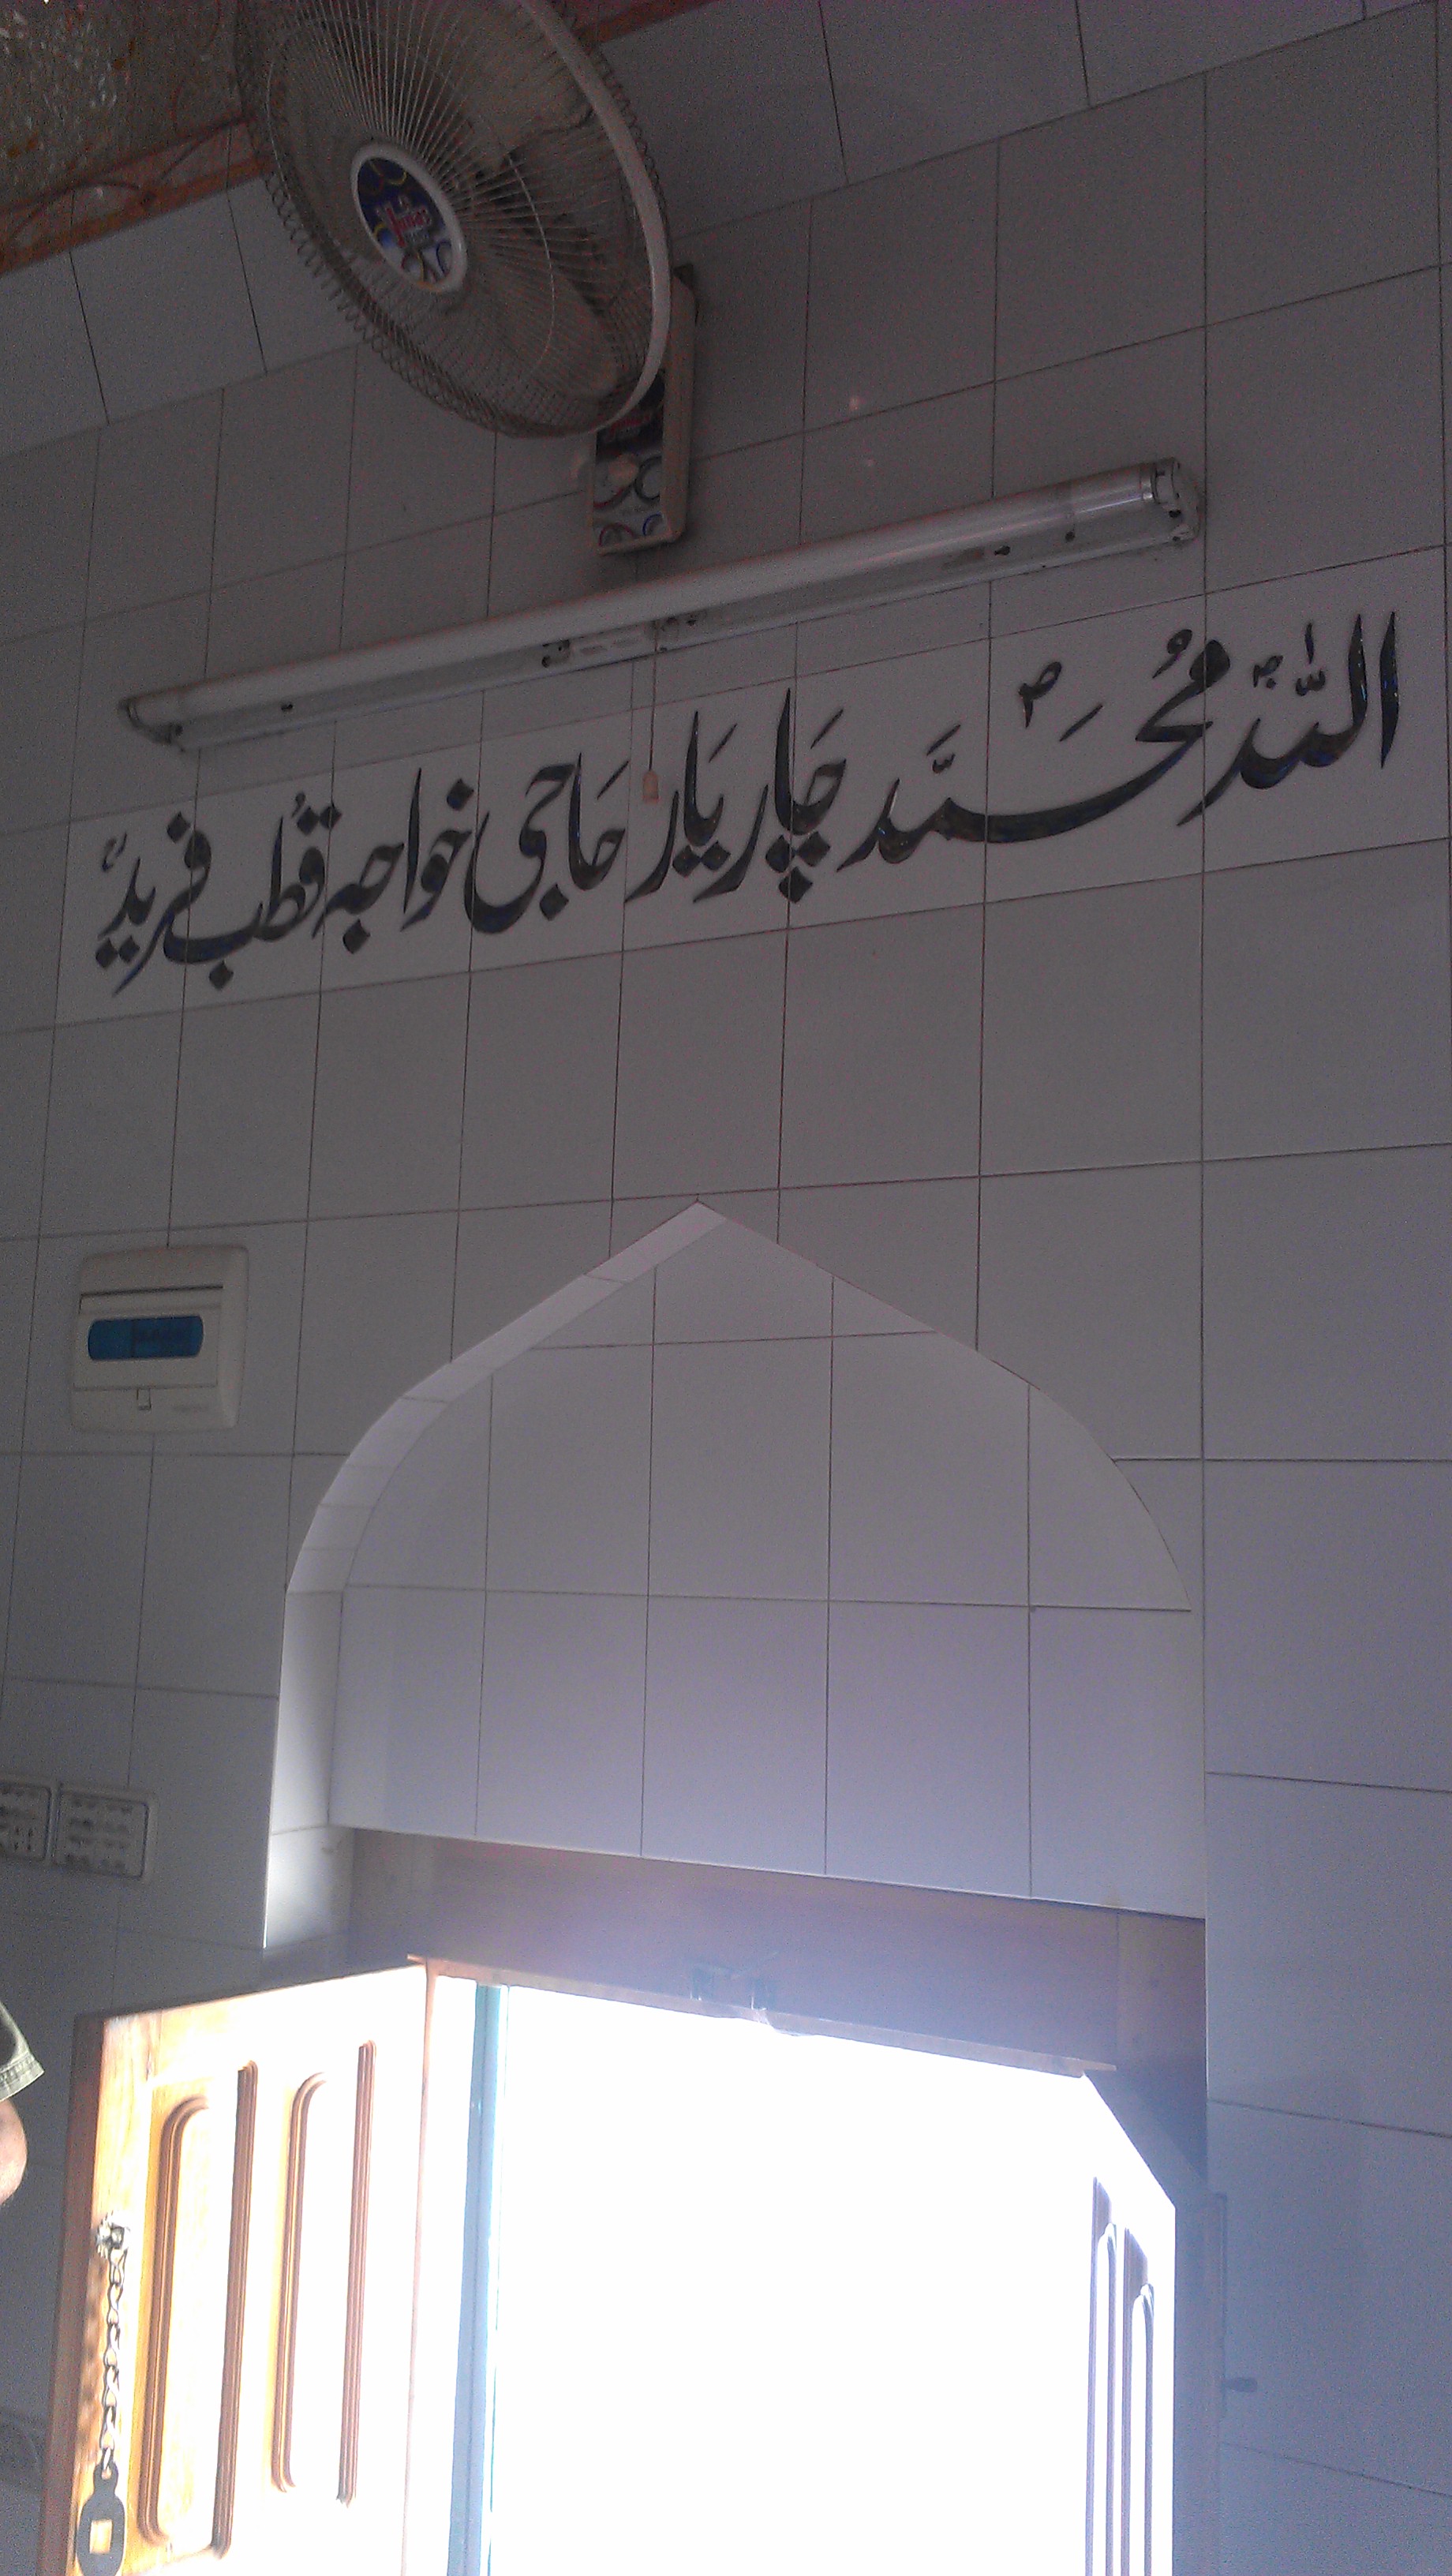 اللہ محمد ؐ چار یار حاجی خواجہ قطب فرید